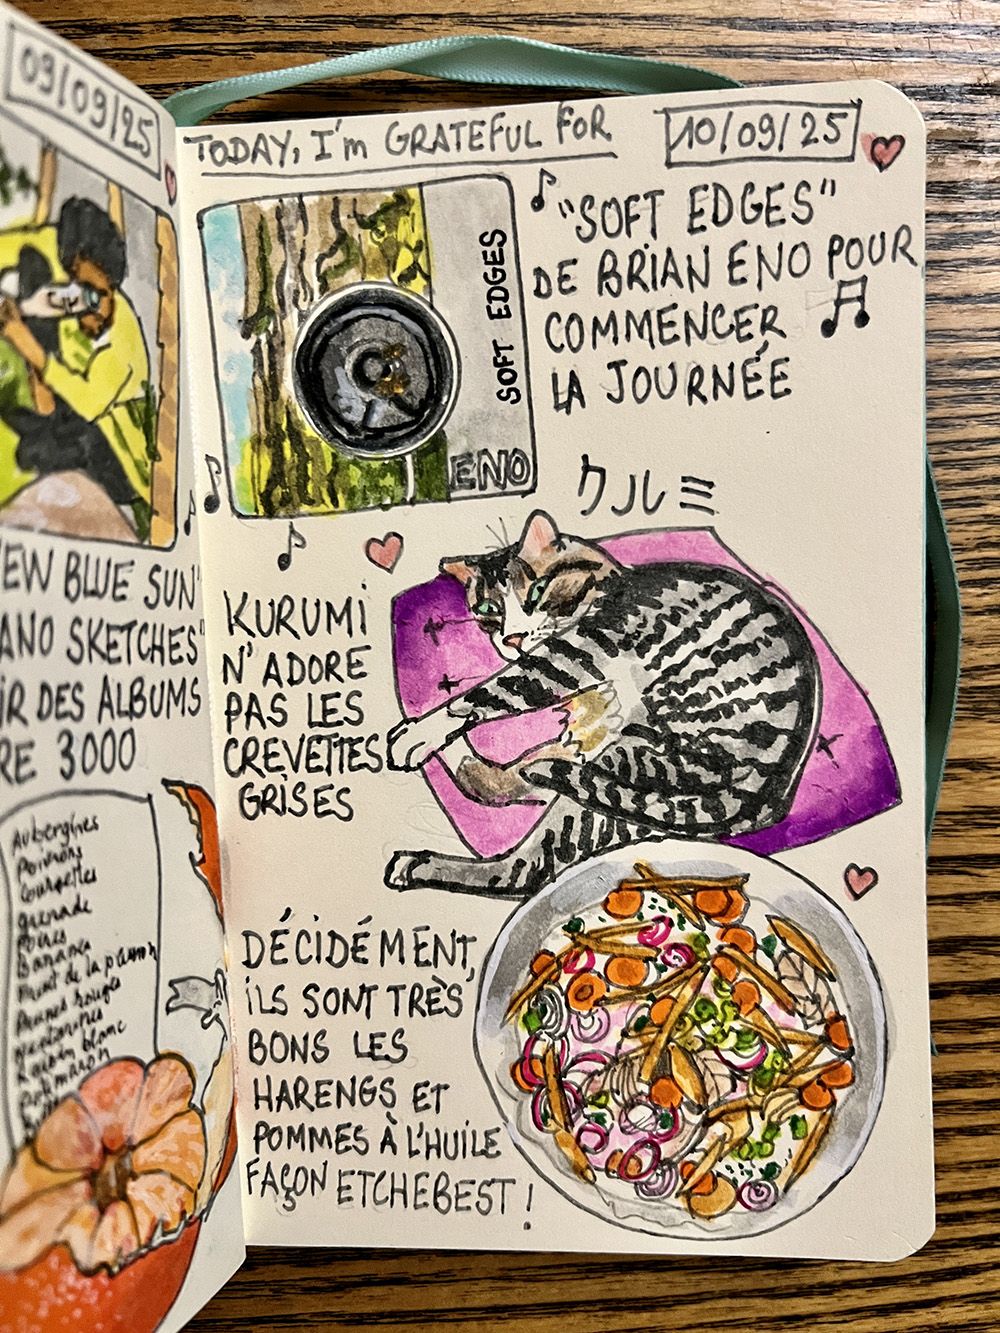 09/09/25
EW BLUE SUN"
ANO SKETCHES"
IR DES ALBUMS
RE 3000
Aubergines
Poivrons
Courgettes
Grenade
Poires
Bananes
Raisin blanc
Potimaron
TODAY, I'm GRATEFUL FOR
10/09/25
SOFT EDGES
ENO
"SOFT EDGES"
DE BRIAN ENO POUR
COMMENCER
LA JOURNÉE
クルミ
KURUMI
N'ADORE
PAS LES
CREVETTES
GRISES
DÉCIDÉMENT,
ILS SONT TRÈS
BONS LES
HARENGS ET
POMMES À L'HUILE
FAÇON ETCHEBEST !